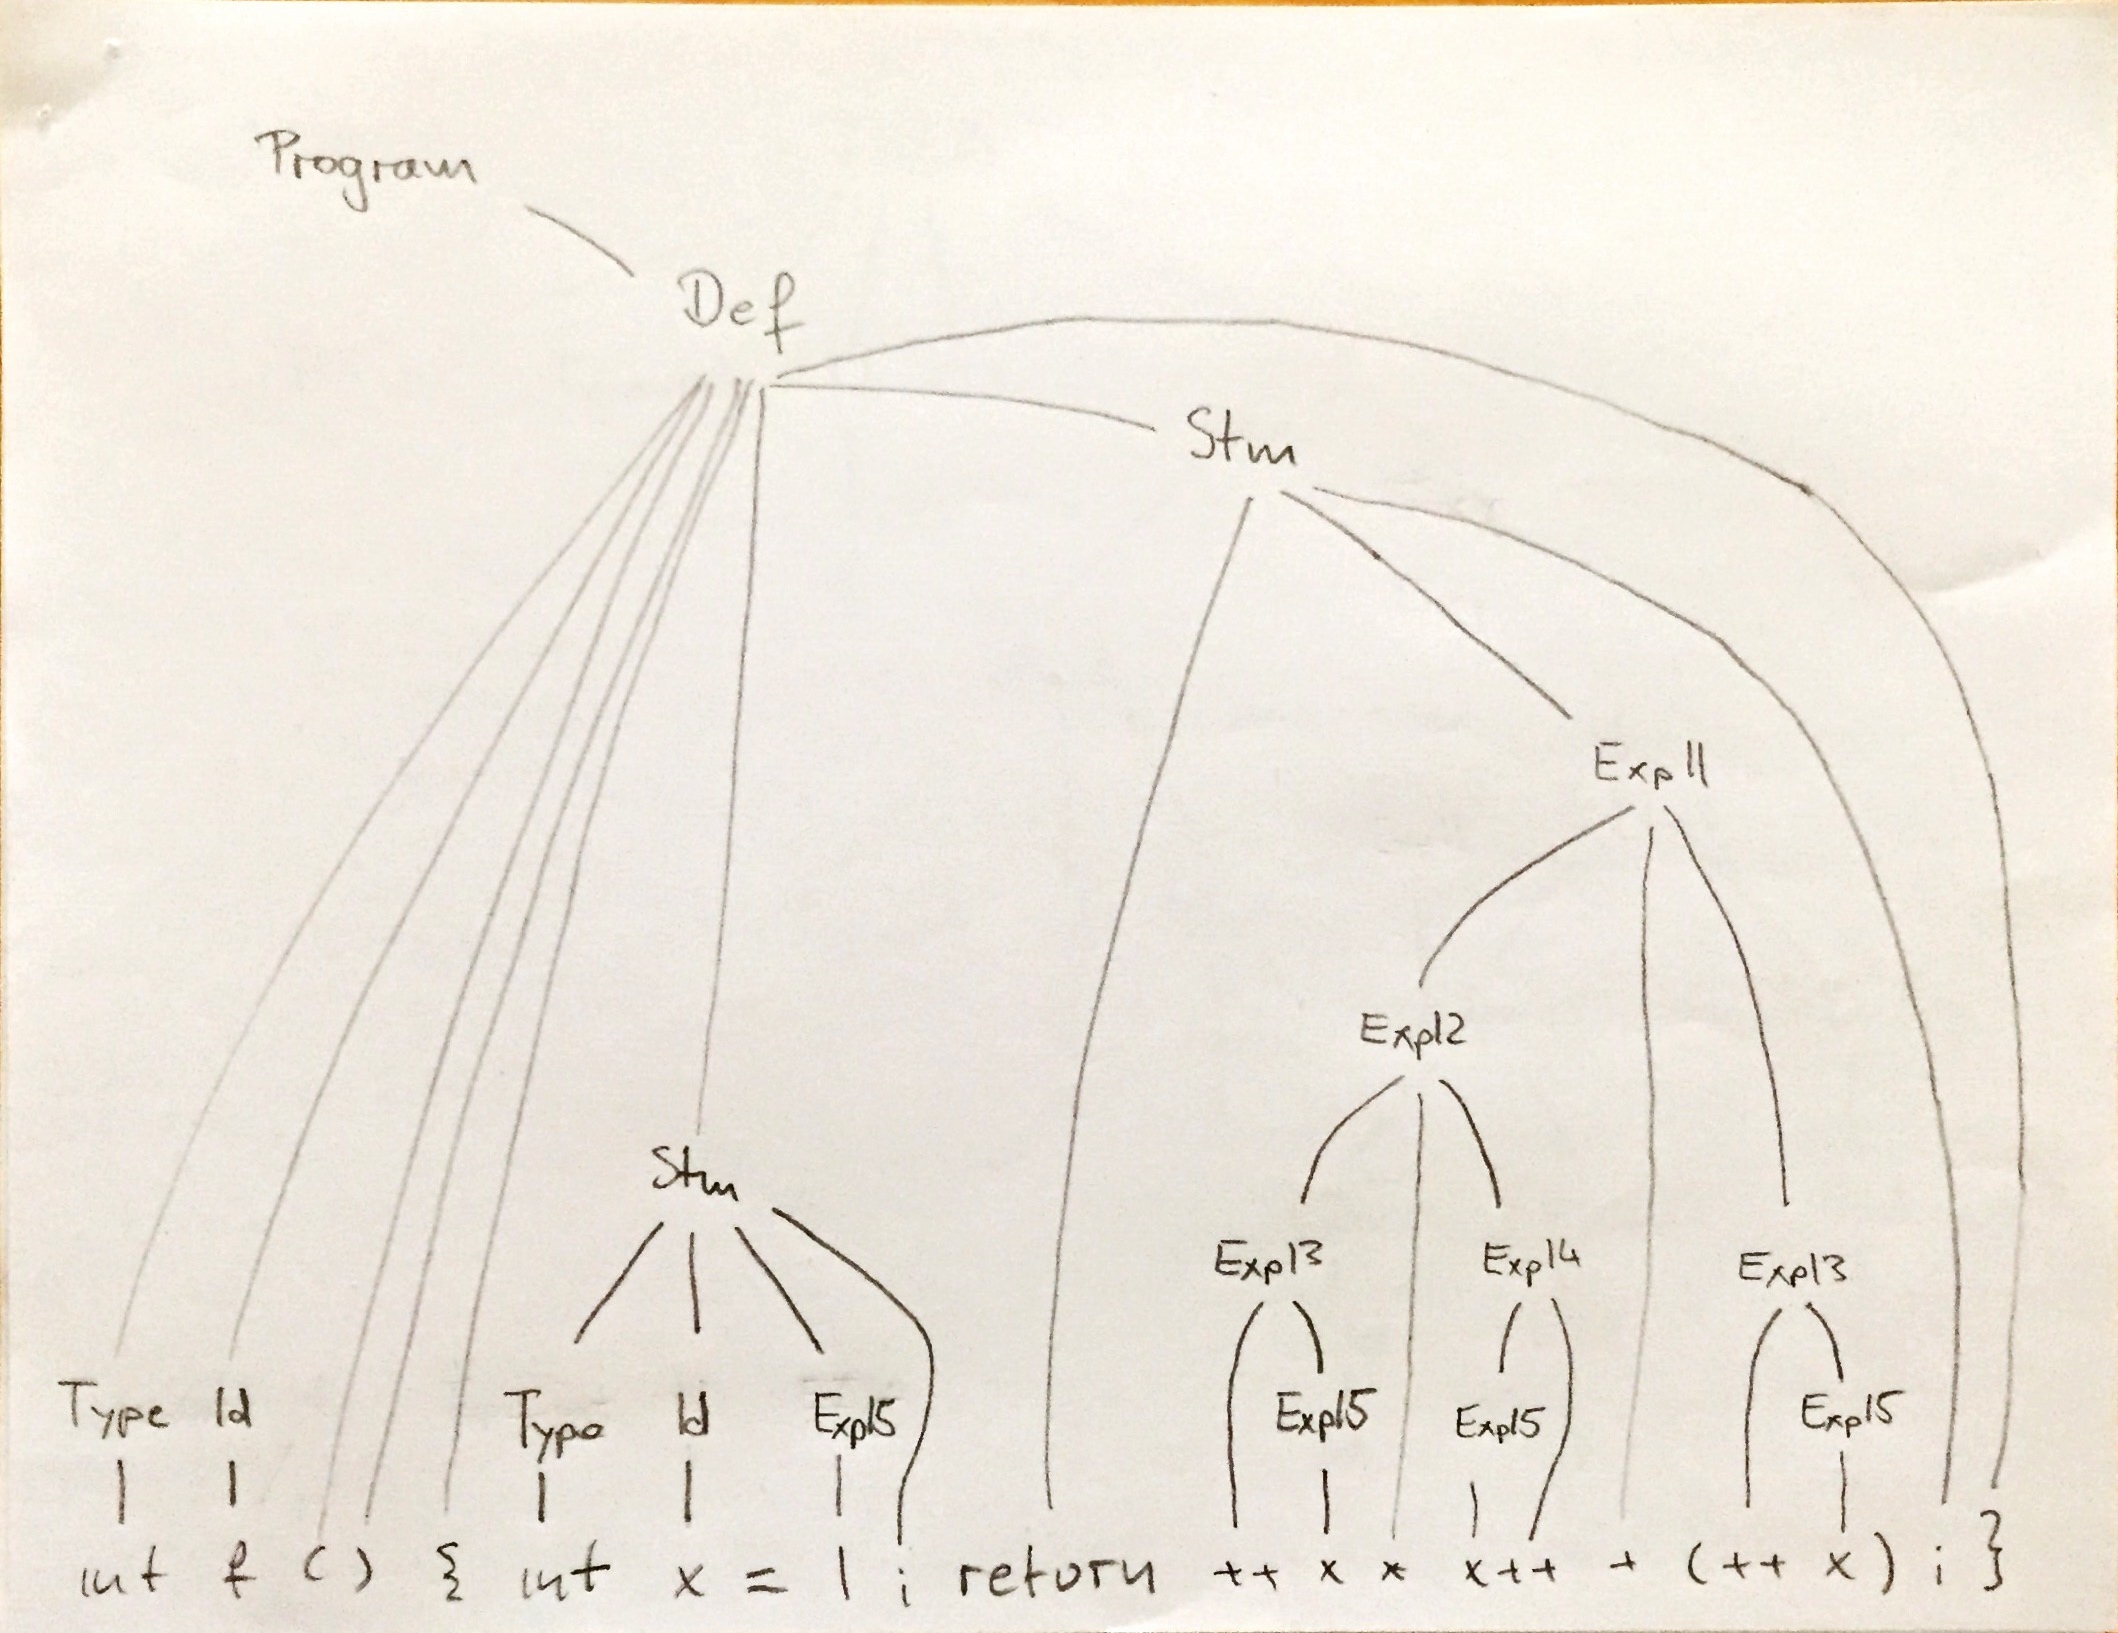 Program
Def
Stm
Exp11
Exp12
Stm
Exp13 Exp14 Exp13
Type Id Type Id Exp15 Exp15 Exp15 Exp15
int f () { int x = 1 ; return ++ x * x++ + (++ x) ; }